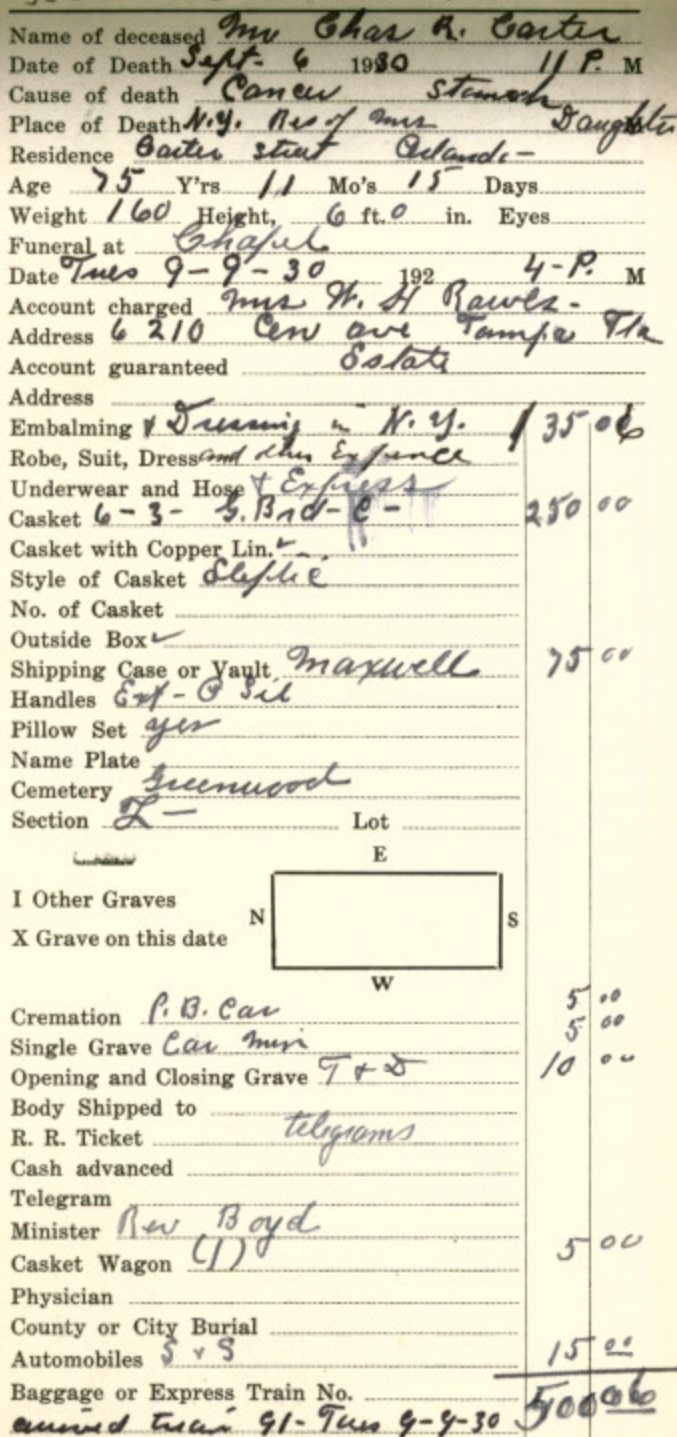 Name of deceased Mr Chas R. Carter
Date of Death Sept- 6 1930 11 P. M
Cause of death Cancer Stomach
Place of Death N.Y. Res of Mrs Daughter
Residence Carter Street Orlando -
Age 75 Y'rs 11 Mo's 15 Days
Weight 160 Height, 6 ft. 0 in. Eyes
Funeral at Chapel
Date Tues 9-9-30 192 4-P. M
Account charged Mrs W. H Rawls -
Address 6210 Cen ave Tampa Fla
Account guaranteed Estate
Address
Embalming & Dressing in N.Y. 135 06
Robe, Suit, Dress and other Expence
Underwear and Hose & Express
Casket 6-3- G. Brd-C- 250 00
Casket with Copper Lin.
Style of Casket Eleptic
No. of Casket
Outside Box ✓
Shipping Case or Vault Maxwell 75 00
Handles Ext - Sil
Pillow Set yes
Name Plate
Cemetery Greenwood
Section Z - Lot
E
I Other Graves
N S
X Grave on this date
W
Cremation P. B. Car 5 00
Single Grave Car Min 5 00
Opening and Closing Grave T & D 10 00
Body Shipped to
R. R. Ticket telegrams
Cash advanced
Telegram
Minister Rev Boyd
Casket Wagon (1) 5 00
Physician
County or City Burial
Automobiles S & S 15 00
Baggage or Express Train No. 500 06
arrived train 91- Tues 9-9-30